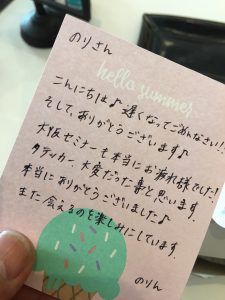 のりさん
hello summer
こんにちは♪ 遅くなってごめんなさい!!
そして、ありがとうございます♪
大阪セミナーも本当にお疲れ様でした!
タティカー、大変だった事と思います。
本当にありがとうございました♪
また会えるのを楽しみにしています。
のりん